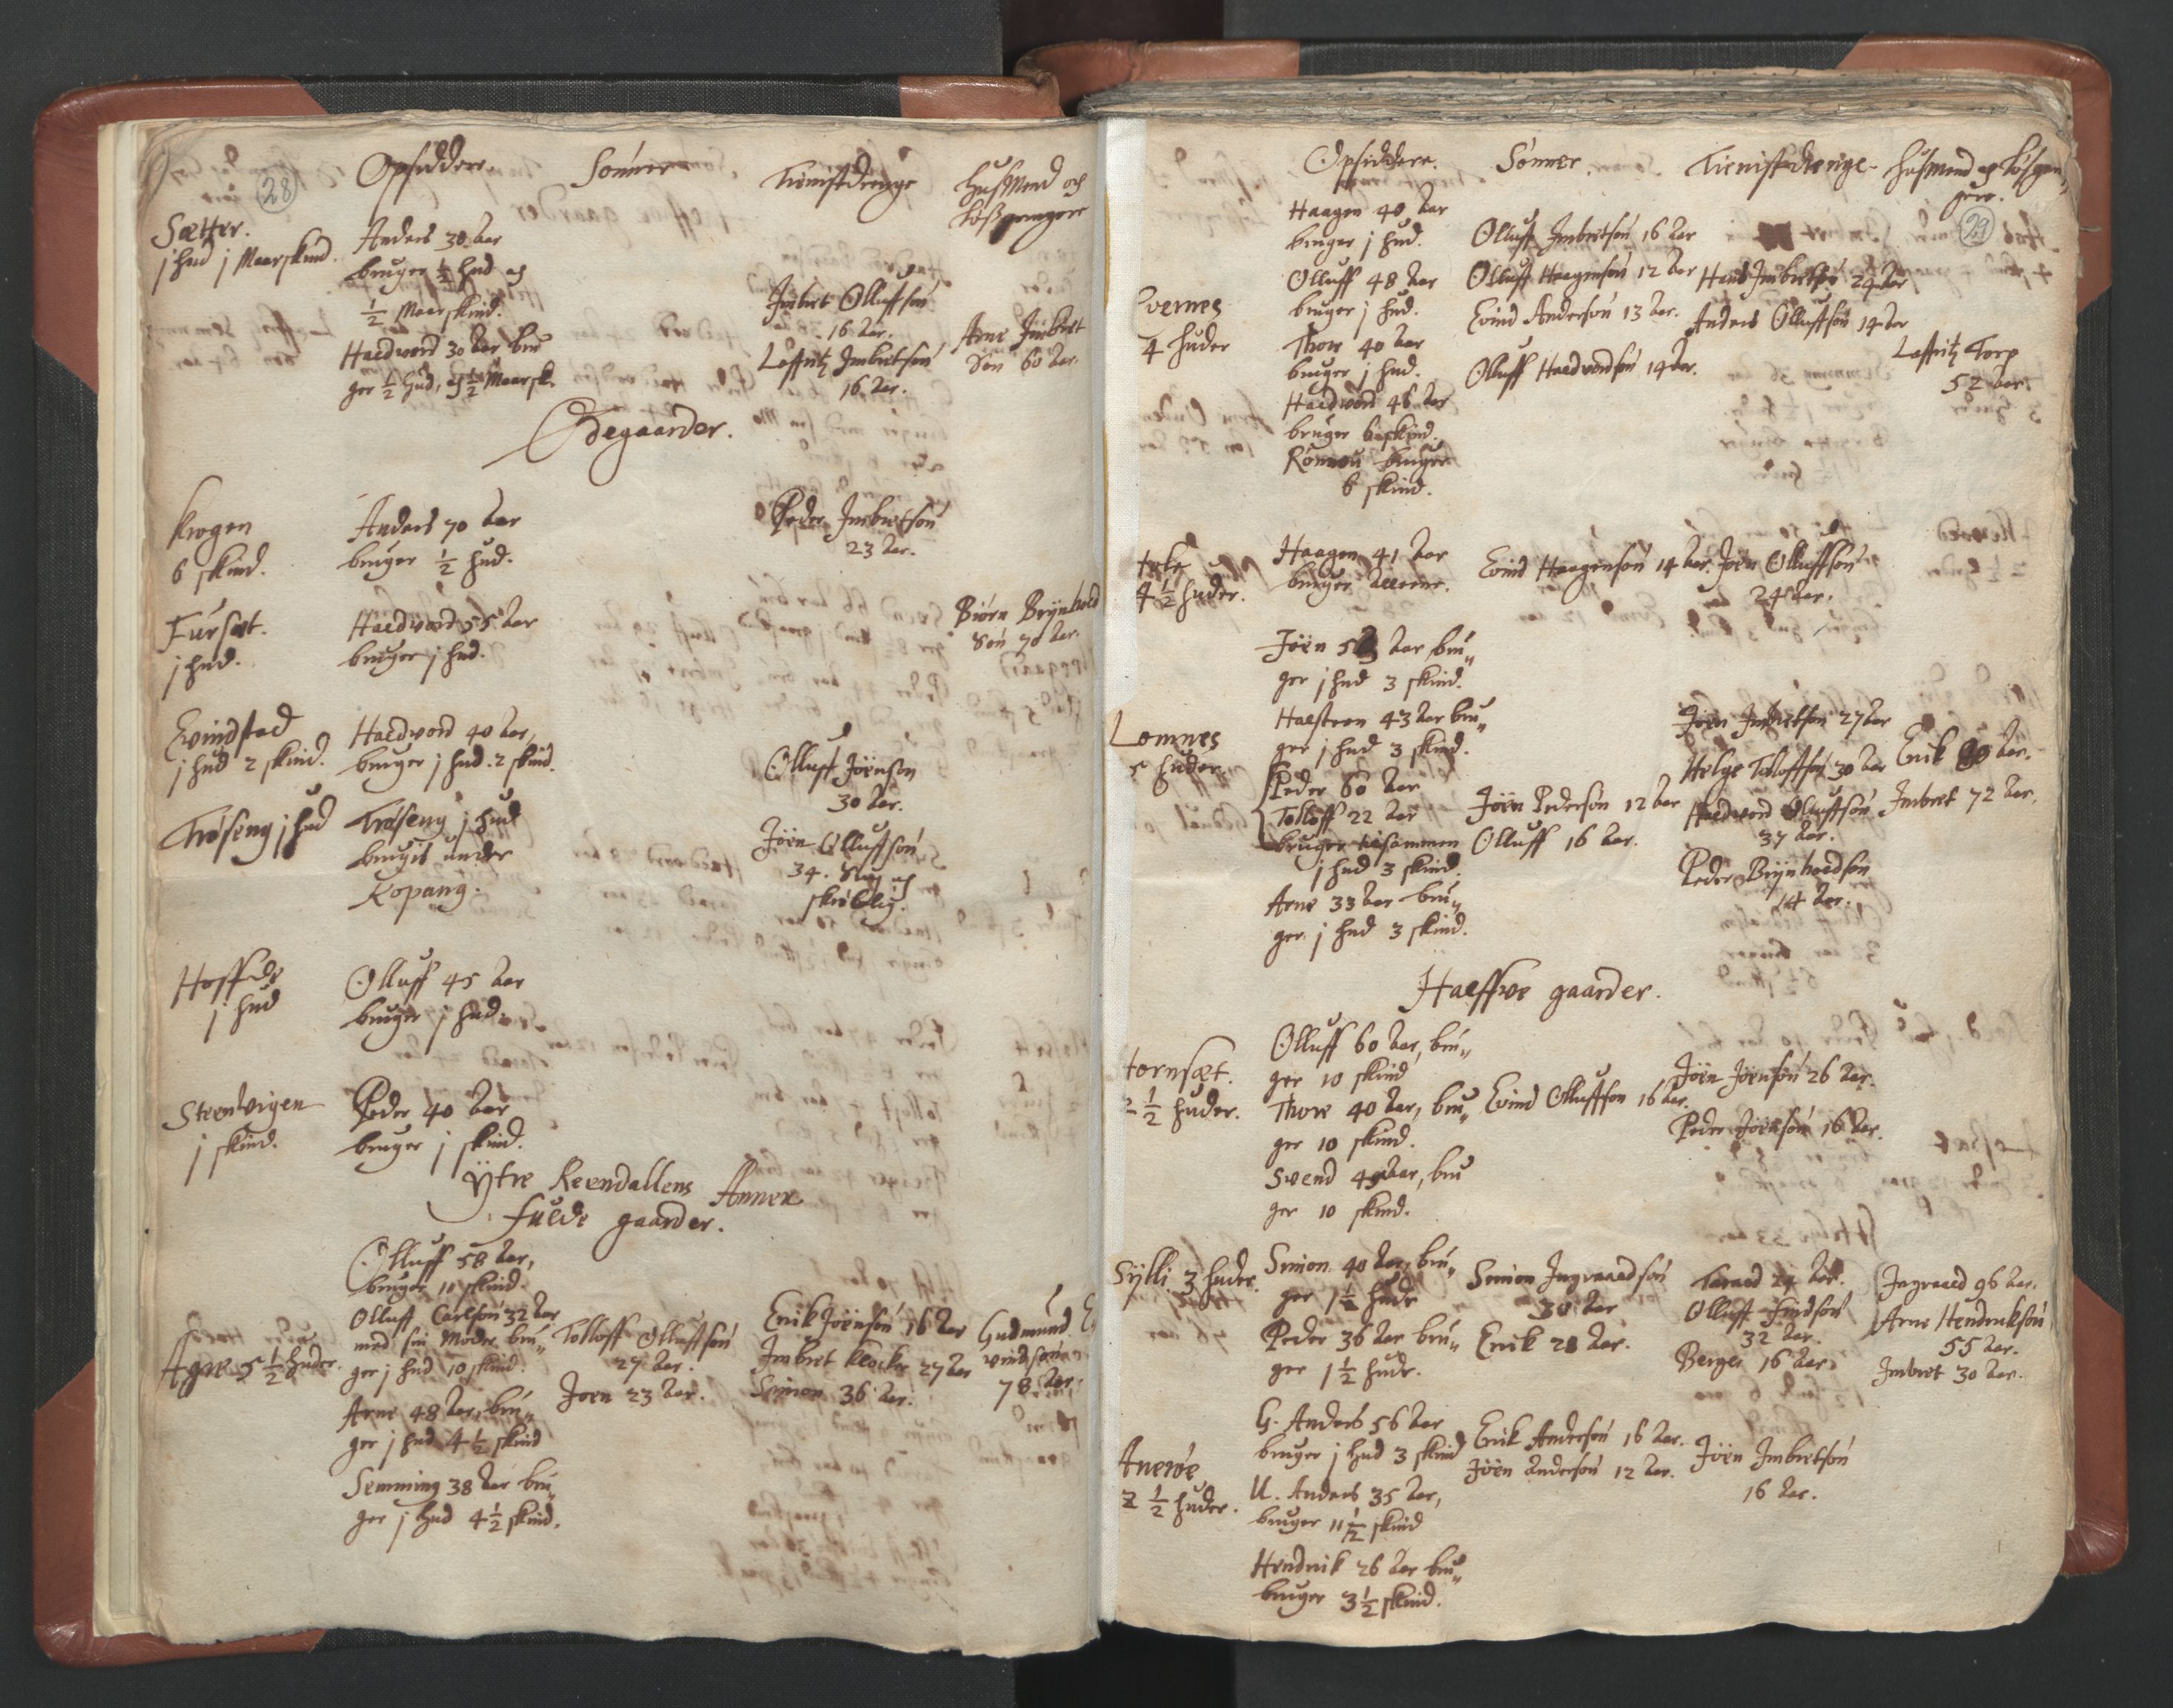 28
Opsiddere.
Sönner
Tienistdrenge
HusMend och
Lößgengere
Sætter.
j hud j Maarskind.
Anders 30 Aar
bruger ½ hud og
½ Maarskind.
Haldword 30 Aar bru
ger ½ hud, og ½ Maarsk.
Imbret Olluffsön
16 Aar.
Laffritz Imbretsön
16 Aar.
Arne Imbret
Sön 60 Aar.
Ödegaarder.
Krogen
6 skind.
Anders 70 Aar
bruger ½ hud.
Peder Imbretsön
23 Aar.
Fursæt.
j hud.
Haldword 55 Aar
bruger j hud.
Biörn Brÿnhold
Sön 70 Aar.
Evindstad
j hud 2 skind.
Haldword 40 Aar,
bruger j hud. 2 skind.
Olluff Jöensön
30 Aar.
Tröseng j hud
Tröseng j hud
brugis under
Kopang.
Jöen Olluffsön
34. Siug och
skröblig.
Hoffde
j hud
Olluff 45 Aar
bruger j hud.
Steenvigen
j skind.
Peder 40 Aar
bruger j skind.
Ÿtre Reendallens Annex
Fulde gaarder.
Agre 5½ huder.
Olluff 58 Aar,
bruger 10 skind.
Olluff Carlsön 32 Aar
med sin Moder bru„
ger j hud 10 skind.
Arne 48 Aar, bru„
ger j hud 4½ skind
Semming 38 Aar bru„
ger j hud 4½ skind.
Tolloff Olluffsön
27 Aar.
Joen 23 Aar.
Erik Jöensön 16 Aar
Imbret Klocker 27 Aar
Simon 36 Aar.
Gudmund E
vindsön
78 Aar.
Opsiddere.
Sönner.
Tienistedrenge
Husmend og Lösgen„
gere.
29
Evernes
4 huder
Haagen 40 Aar
bruger j hud.
Olluff 48 Aar
bruger j hud.
Thore 40 Aar
bruger j hud.
Haldword 46 Aar
bruger 6 skind.
Rönnou bruger
6 skind.
Olluff Imbretsön 16 Aar
Olluff Haagensön 12 Aar
Evind Andersön 13 Aar.
Olluff Haldvordsön 14 Aar.
Hans Imbretsön 24 Aar
Anders Olluffsön 14 Aar
Laffritz Torp
52 Aar.
4½ huder.
Haagen 41 Aar
bruger alleene.
Evind Haagensön 14 Aar.
Jöen Olluffsön
24 Aar.
Lomnes
5 huder
Jöen Aar bru„
ger j hud 3 skind.
Halsteen 43 Aar bru„
ger j hud 3 skind.
Peder 60 Aar
Tolloff 22 Aar
bruger tilsammen
j hud 3 skind.
Arne 33 Aar bru„
ger j hud 3 skind.
Jöen Pedersön 12 Aar
Olluff 16 Aar.
Jöen Imbretsön 27 Aar
Helge Tolloffsön 30 Aar
Haldvord Olluffsön
37 Aar.
Peder Brÿnholdsön
14 Aar.
Erik Aar.
Imbret 72 Aar.
Halffwe gaarder.
tornsæt.
2½ huder.
Olluff 60 Aar, bru„
ger 10 skind
Thore 40 Aar, bru„
ger 10 skind.
Svend Aar, bru
ger 10 skind.
Evind Olluffsön 16 Aar.
Jöen Jöensön 26 Aar.
Peder Jöensön 16 Aar.
Sÿlli 3 huder.
Simon 40 Aar, bru„
ger 1½ hude
Peder 36 Aar bru„
ger 1½ hude.
Simon Ingvaldsön
30 Aar
Erik 28 Aar.
Tarald 24 Aar.
Olluff Findsön
32 Aar.
Berger 16 Aar.
Ingvald 96 Aar.
Arne Hendriksön
55 Aar.
Imbret 30 Aar.
2½ huder.
G. Anders 56 Aar
bruger j hud 3 skind
U. Anders 35 Aar,
bruger 11½ skind
Hendrik 26 Aar bru„
bruger 3½ skind.
Erik Andersön 16 Aar.
Jöen Andersön 12 Aar.
Jöen Imbretsön
16 Aar.